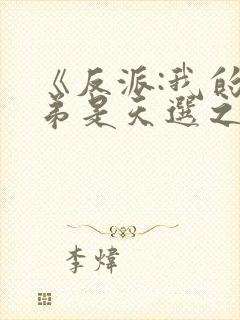 《反派:我的
弟是天選之
李煒